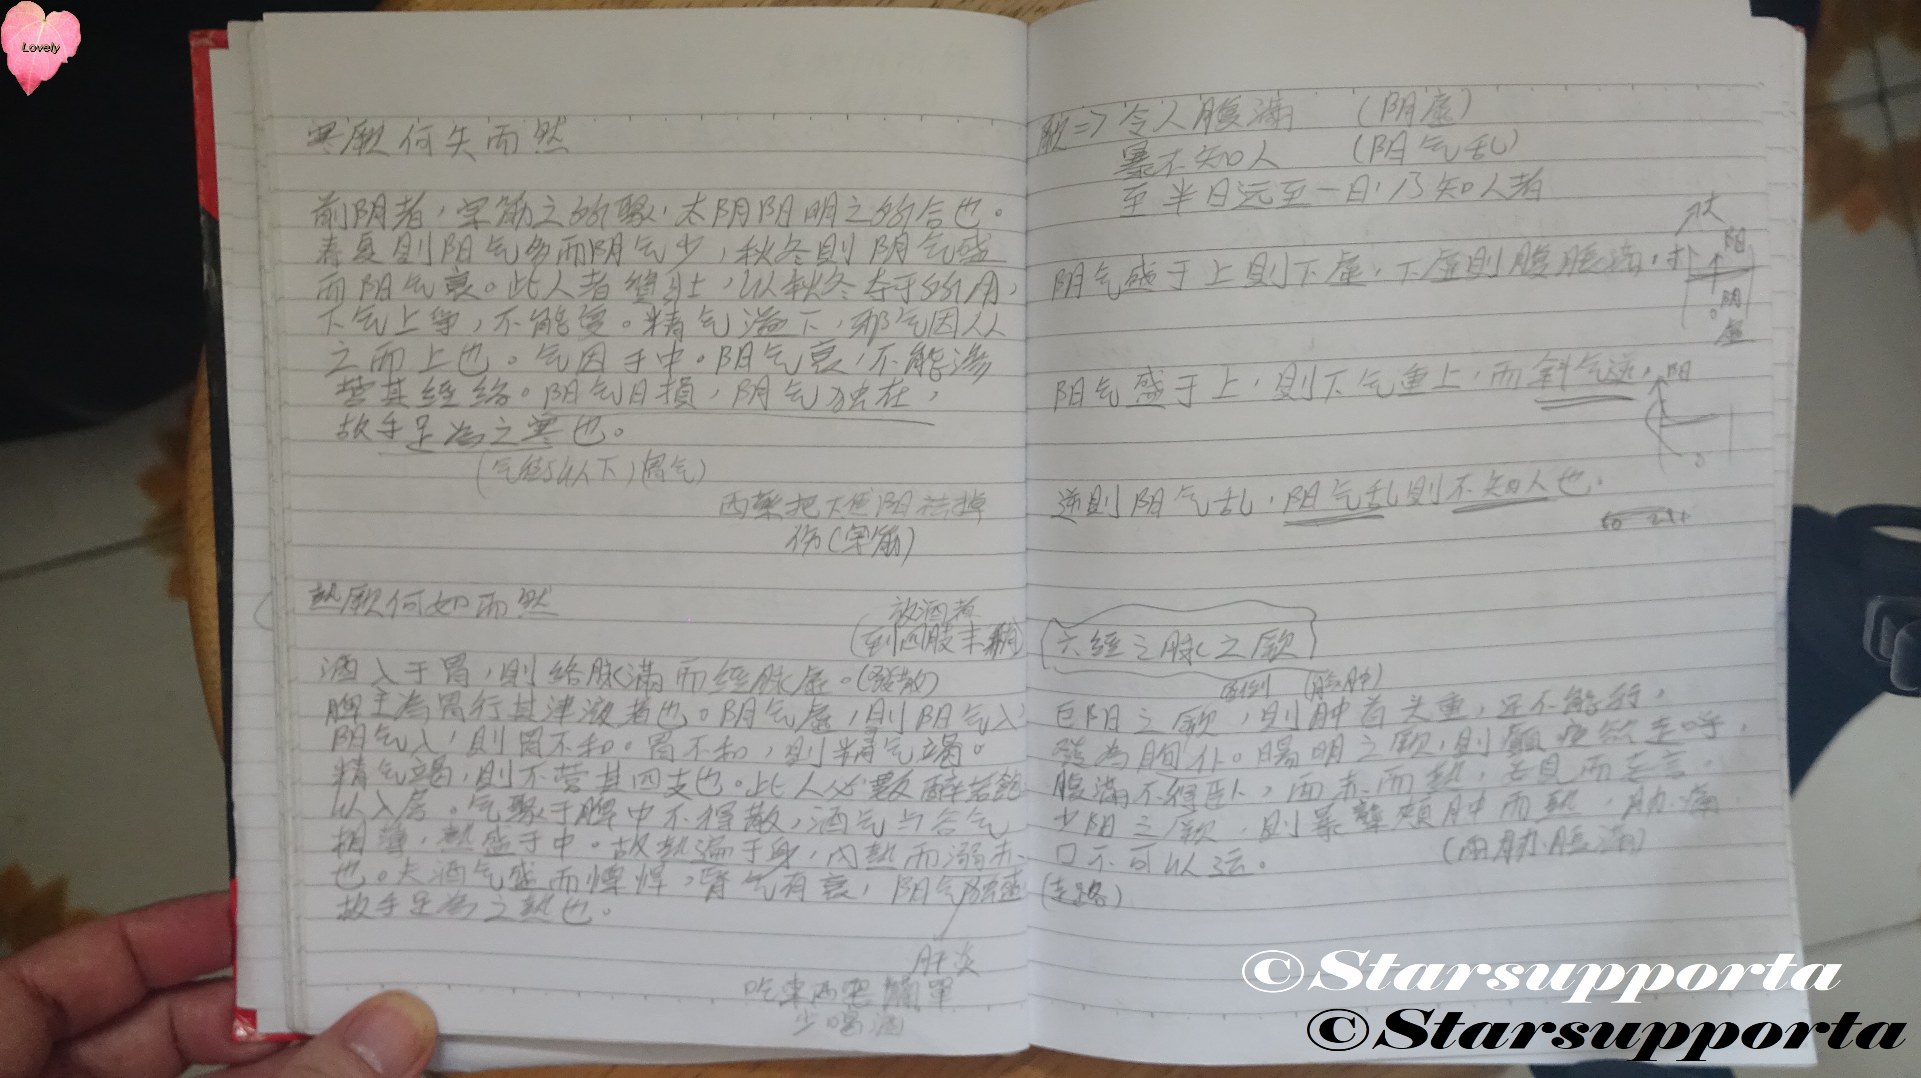 Lovely
寒厥何失而然
前阴者，宗筋之所聚，太阴阳明之所合也。
春夏则阳气多而阴气少，秋冬则阴气盛
而阳气衰。此人者质壮，以秋冬夺于所用，
下气上争，不能复。精气溢下，邪气因从
之而上也。气因于中。阳气衰，不能渗
营其經络。阳气日損，阴气独在，
故手足為之寒也。
(气街以下，胃气)
西藥把下焦阴 掉
伤(宗筋)
热厥何如而然
放酒者
(到四肢末梢)
酒入于胃，则络脉滿而經脉虚。(發散)
脾主為胃行其津液者也。阴气虚，则阳气入
阳气入，则胃不和。胃不和，则精气竭。
精气竭，则不营其四支也。此人必數醉若飽
以入房。气聚于脾中不得散，酒气与谷气
相薄，热盛于中。故热遍于身，内热而溺赤
也。夫酒气盛而慓悍，肾气有衰，阳气独盛
故手足為之热也。
肝炎
吃東西要簡單
少喝酒
厥=> 令人腹滿 (阴虚)
暴不知人 (阳气乱)
至半日远至一日，乃知人者
阴气盛于上则下虚，下虚则腹脹滿，
阳
阴
虚
阳气盛于上，则下气重上，而斜气逆，
阳
逆则阳气乱，阳气乱则不知人也。
六經之脉之厥
(臉肿)
巨阳之厥，则肿首头重，足不能行，
發為眴仆。陽明之厥，则癲疾欲走呼，
腹滿不得卧，面赤而热，妄見而妄言。
少阳之厥，则暴聾頰肿而热，肋痛
(兩肋脹滿)
口不可以运。
(走路)
©Starsupporta
©Starsupporta